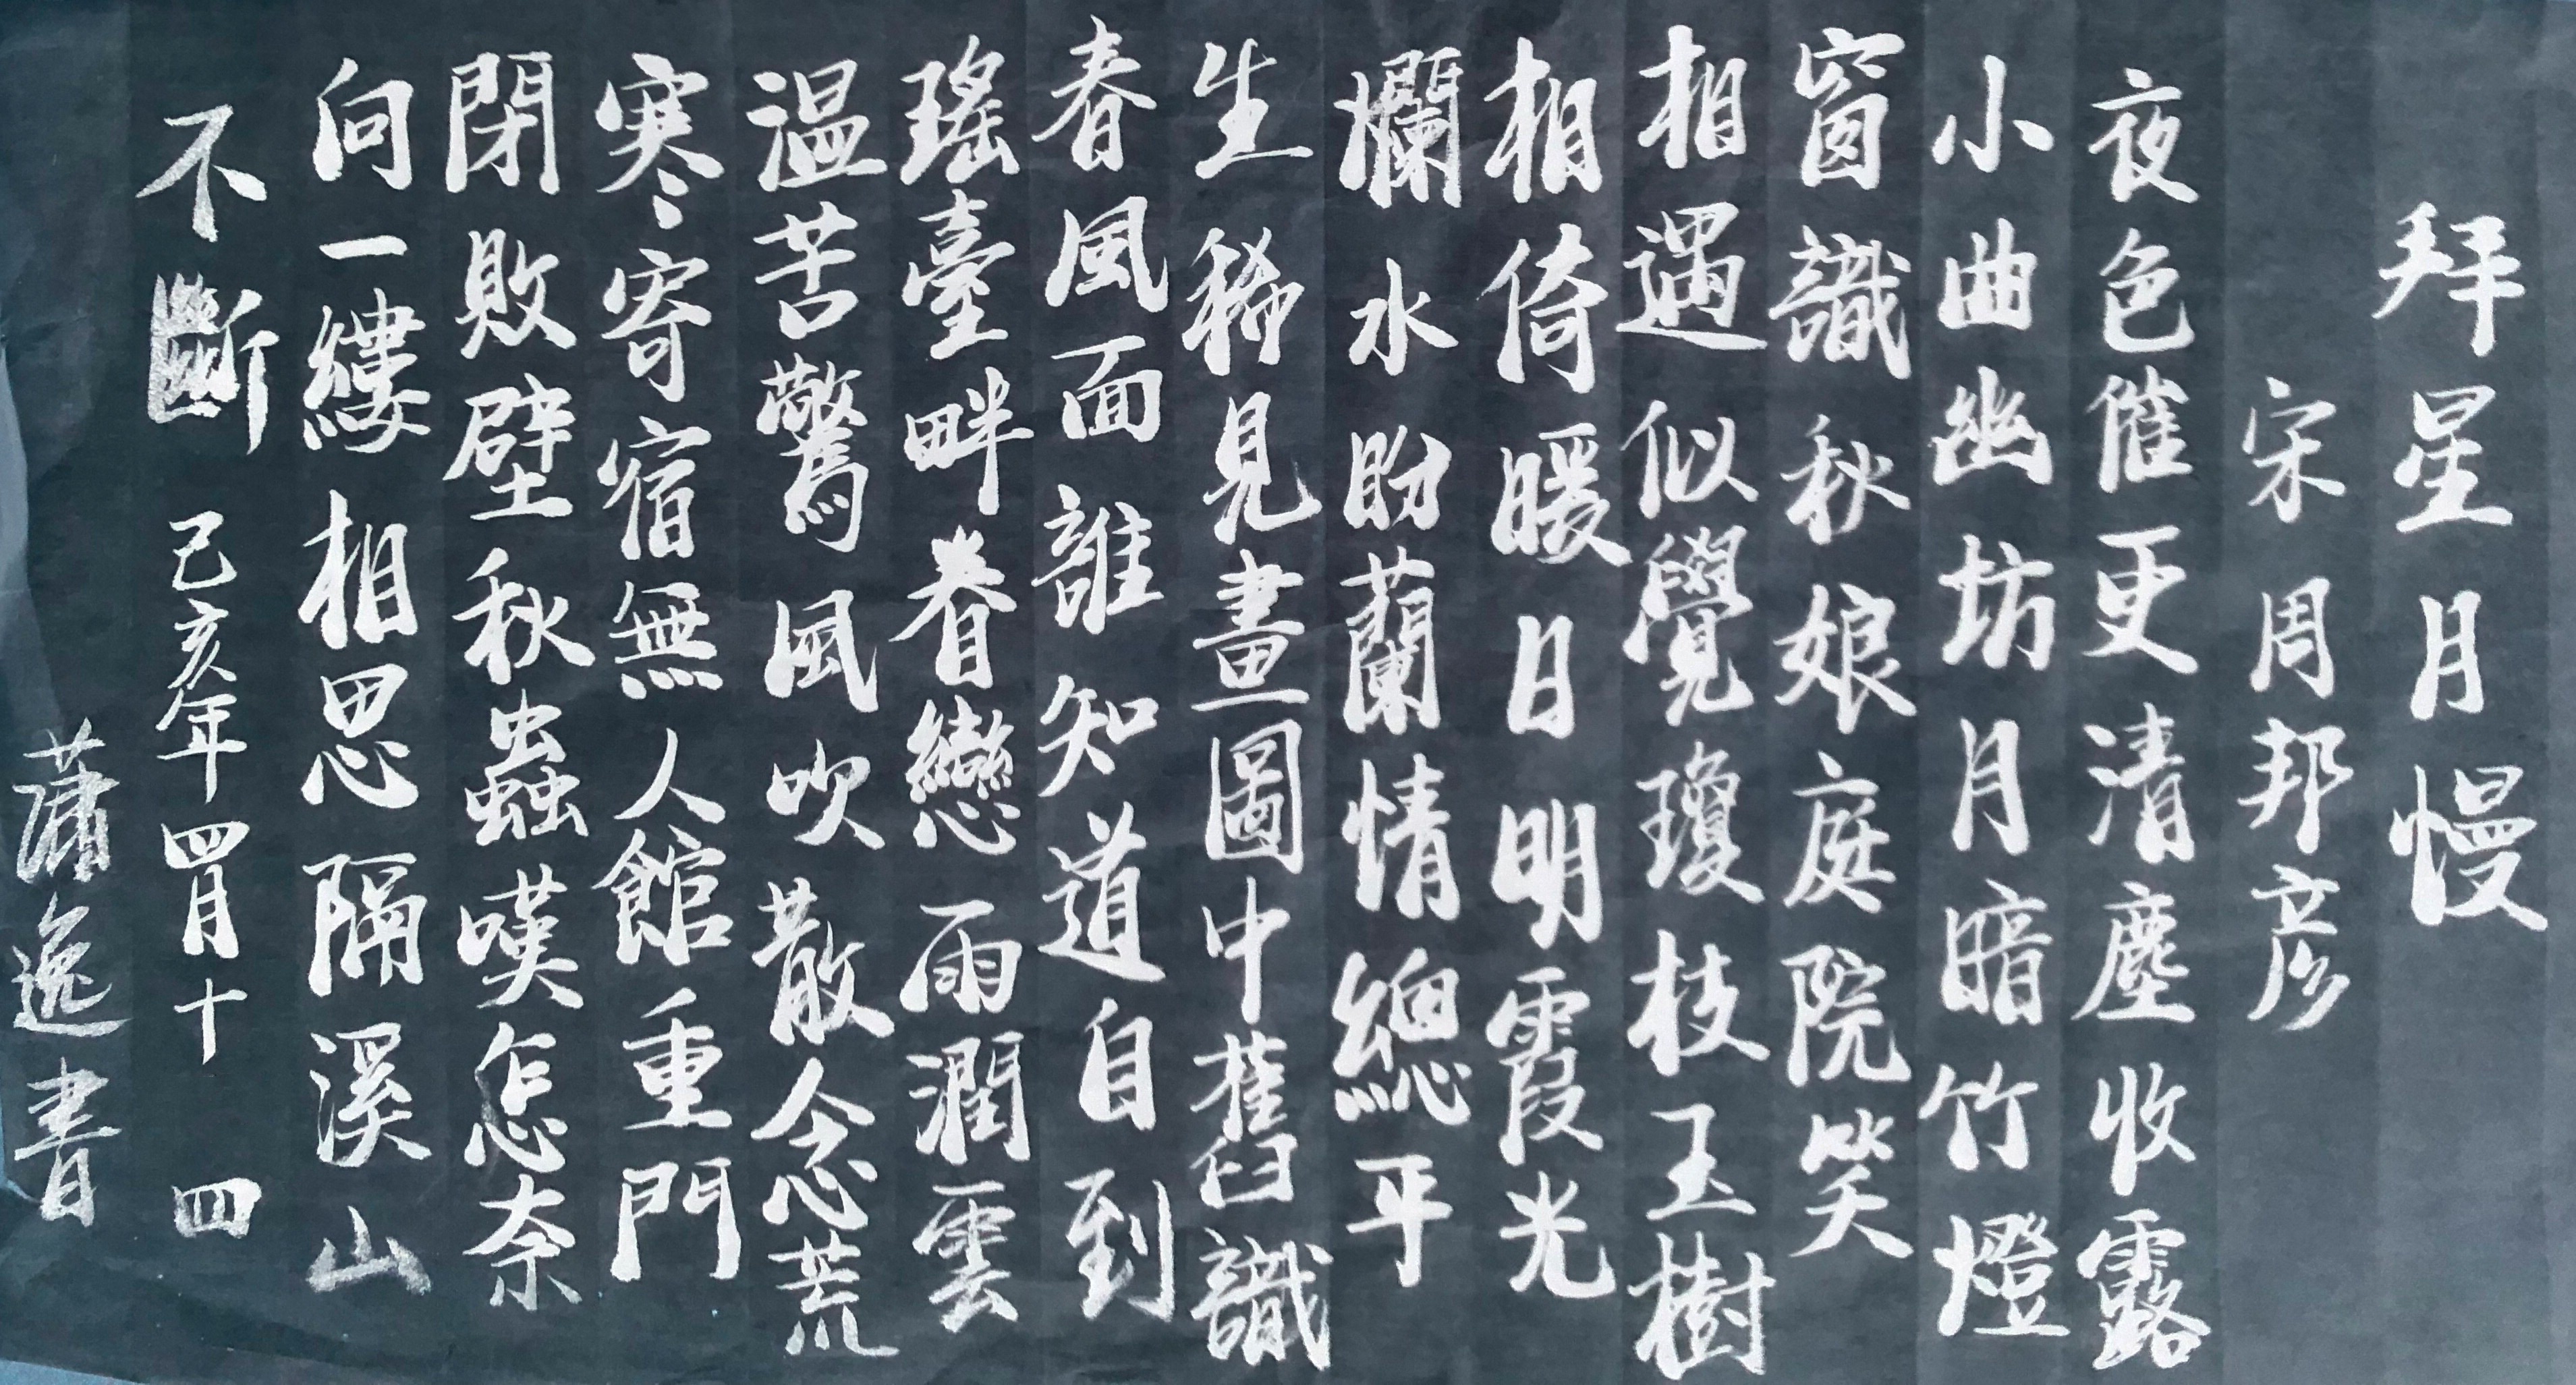 拜星月慢
宋周邦彥
夜色催更清塵收露
小曲幽坊月暗竹燈
窗識秋娘庭院笑
相遇似覺瓊枝玉樹
相倚暖日明霞光
爛水盼蘭情總平
生稀見畫圖中舊識
春風面誰知道自到
瑤臺畔眷戀雨潤雲
溫苦驚風吹散念荒
寒寄宿無人館重門
閉敗壁秋蟲嘆怎奈
向一縷相思隔溪山
不斷 己亥年四月十四
蕭逸書